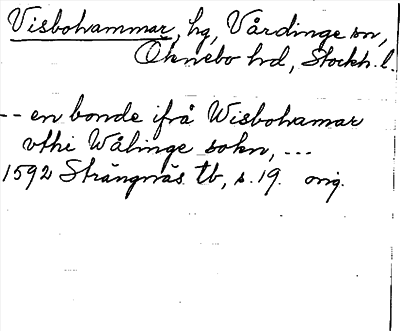 Visbohammar, hg, Vårdinge sn,
Öknebo hd, Stockh. l.
-- en bonde ifrå Wisbohamar
vthi Wålinge sokn, ---
1592 Strängnäs tb, s. 19. orig.